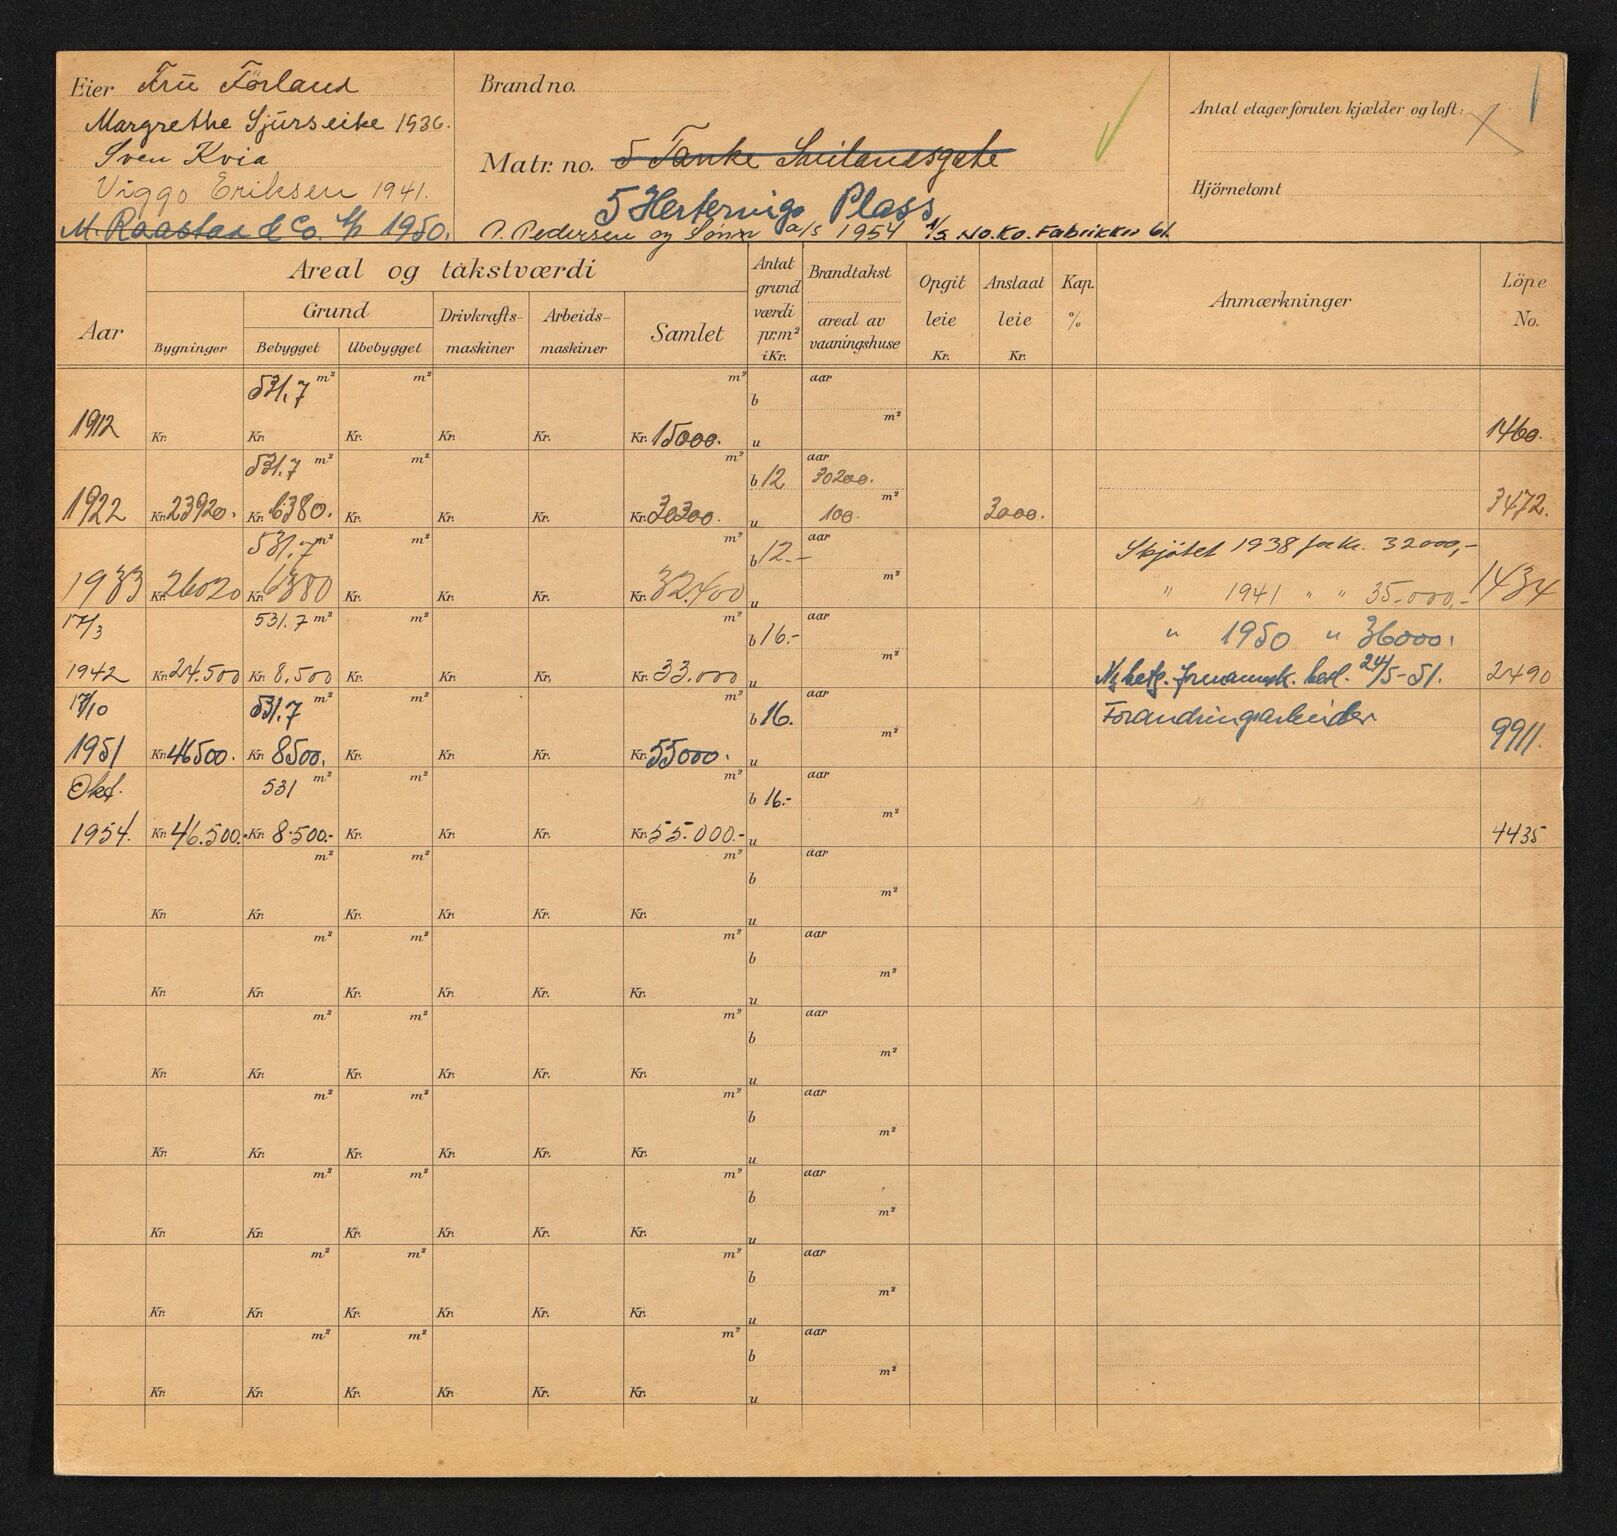 Eier Fru Förland
Margrethe Sjurseike 1936.
Sven Kvia
Viggo Eriksen 1941.
M. Raastad & Co. A/S 1950.
Brandno.
Matr. no. 5 Tanke Svilandsgate
5 Hertervigs Plass
P. Pedersen og Sønn a/s 1954 A/S No.Ko. Fabrikker 61.
Antal etager foruten kjælder og loft:
Hjörnetomt
Aar
Areal og takstværdi
Bygninger
Grund
Bebygget
Ubebygget
Drivkrafts-maskiner
Arbeids-maskiner
Samlet
Antat grund værdi pr.m² i Kr.
Brandtakst
areal av vaaningshuse
Opgit leie Kr.
Anslaat leie Kr.
Kap. %
Anmærkninger
Löpe No.
531,7 m² m² m² aar
b m²
1912 Kr. Kr. Kr. Kr. Kr. Kr. 15000. u 1460.
531.7 m² m² m² aar
b 12 30200. m²
1922 Kr. 23920. Kr. 6380. Kr. Kr. Kr. Kr. 30300. u 100. 3000. 3472.
531,7 m² m² m² aar Skjötet 1938 for kr. 32000,-
b 12.- m²
1933 Kr. 26020 Kr. 6380 Kr. Kr. Kr. Kr. 32.400 u " 1941 " " 35.000,- 1434
17/3 531.7 m² m² m² aar
b 16.- m² " 1950 " 36000.
1942 Kr. 24.500 Kr. 8.500 Kr. Kr. Kr. Kr. 33.000 u 24/5-51. 2490
17/10 531.7 m² m² m² aar Forandringsarbeider
b 16. m²
1951 Kr. 46500. Kr. 8500. Kr. Kr. Kr. Kr. 55000. u 9911.
Okt. 531 m² m² m² aar
b 16.- m²
1954. Kr. 46.500.- Kr. 8.500.- Kr. Kr. Kr. Kr. 55.000.- u 4435
m² m² m² aar
b m²
Kr. Kr. Kr. Kr. Kr. Kr. u
m² m² m² aar
b m²
Kr. Kr. Kr. Kr. Kr. Kr. u
m² m² m² aar
b m²
Kr. Kr. Kr. Kr. Kr. Kr. u
m² m² m² aar
b m²
Kr. Kr. Kr. Kr. Kr. Kr. u
m² m² m² aar
b m²
Kr. Kr. Kr. Kr. Kr. Kr. u
m² m² m² aar
b m²
Kr. Kr. Kr. Kr. Kr. Kr. u
m² m² m² aar
b m²
Kr. Kr. Kr. Kr. Kr. Kr. u